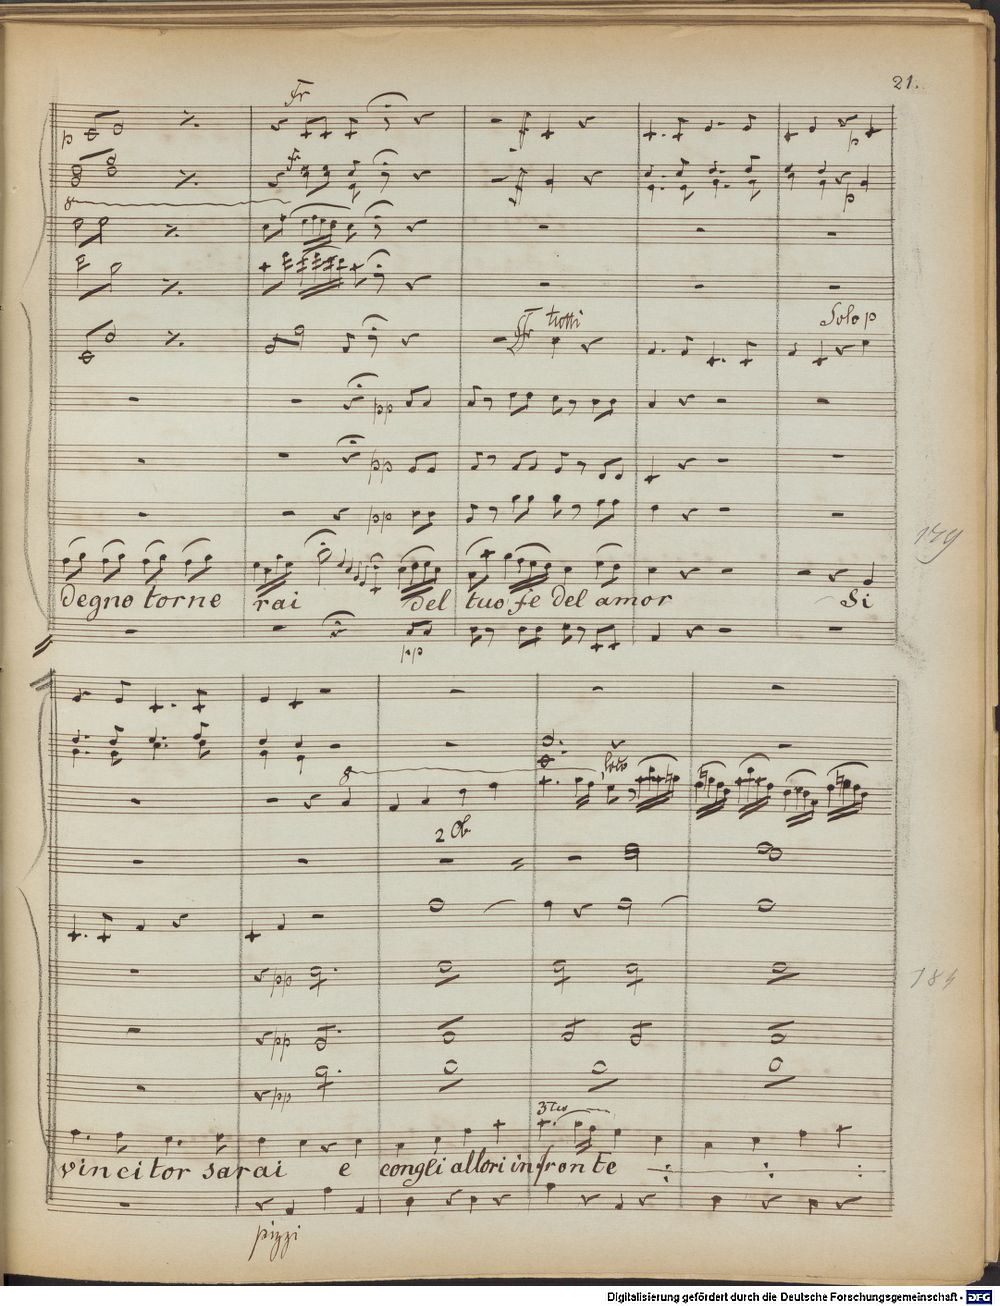 21.
Fr
p
fr
p
8
Sfr tutti
Solo p
pp
pp
pp
179
degno torne rai del tuo fe del amor Si
pp
8
loco
2 Ob
pp
184
pp
pp
3tes
vincitor sarai e congli allori in fronte
pizzi
Digitalisierung gefördert durch die Deutsche Forschungsgemeinschaft - DFG